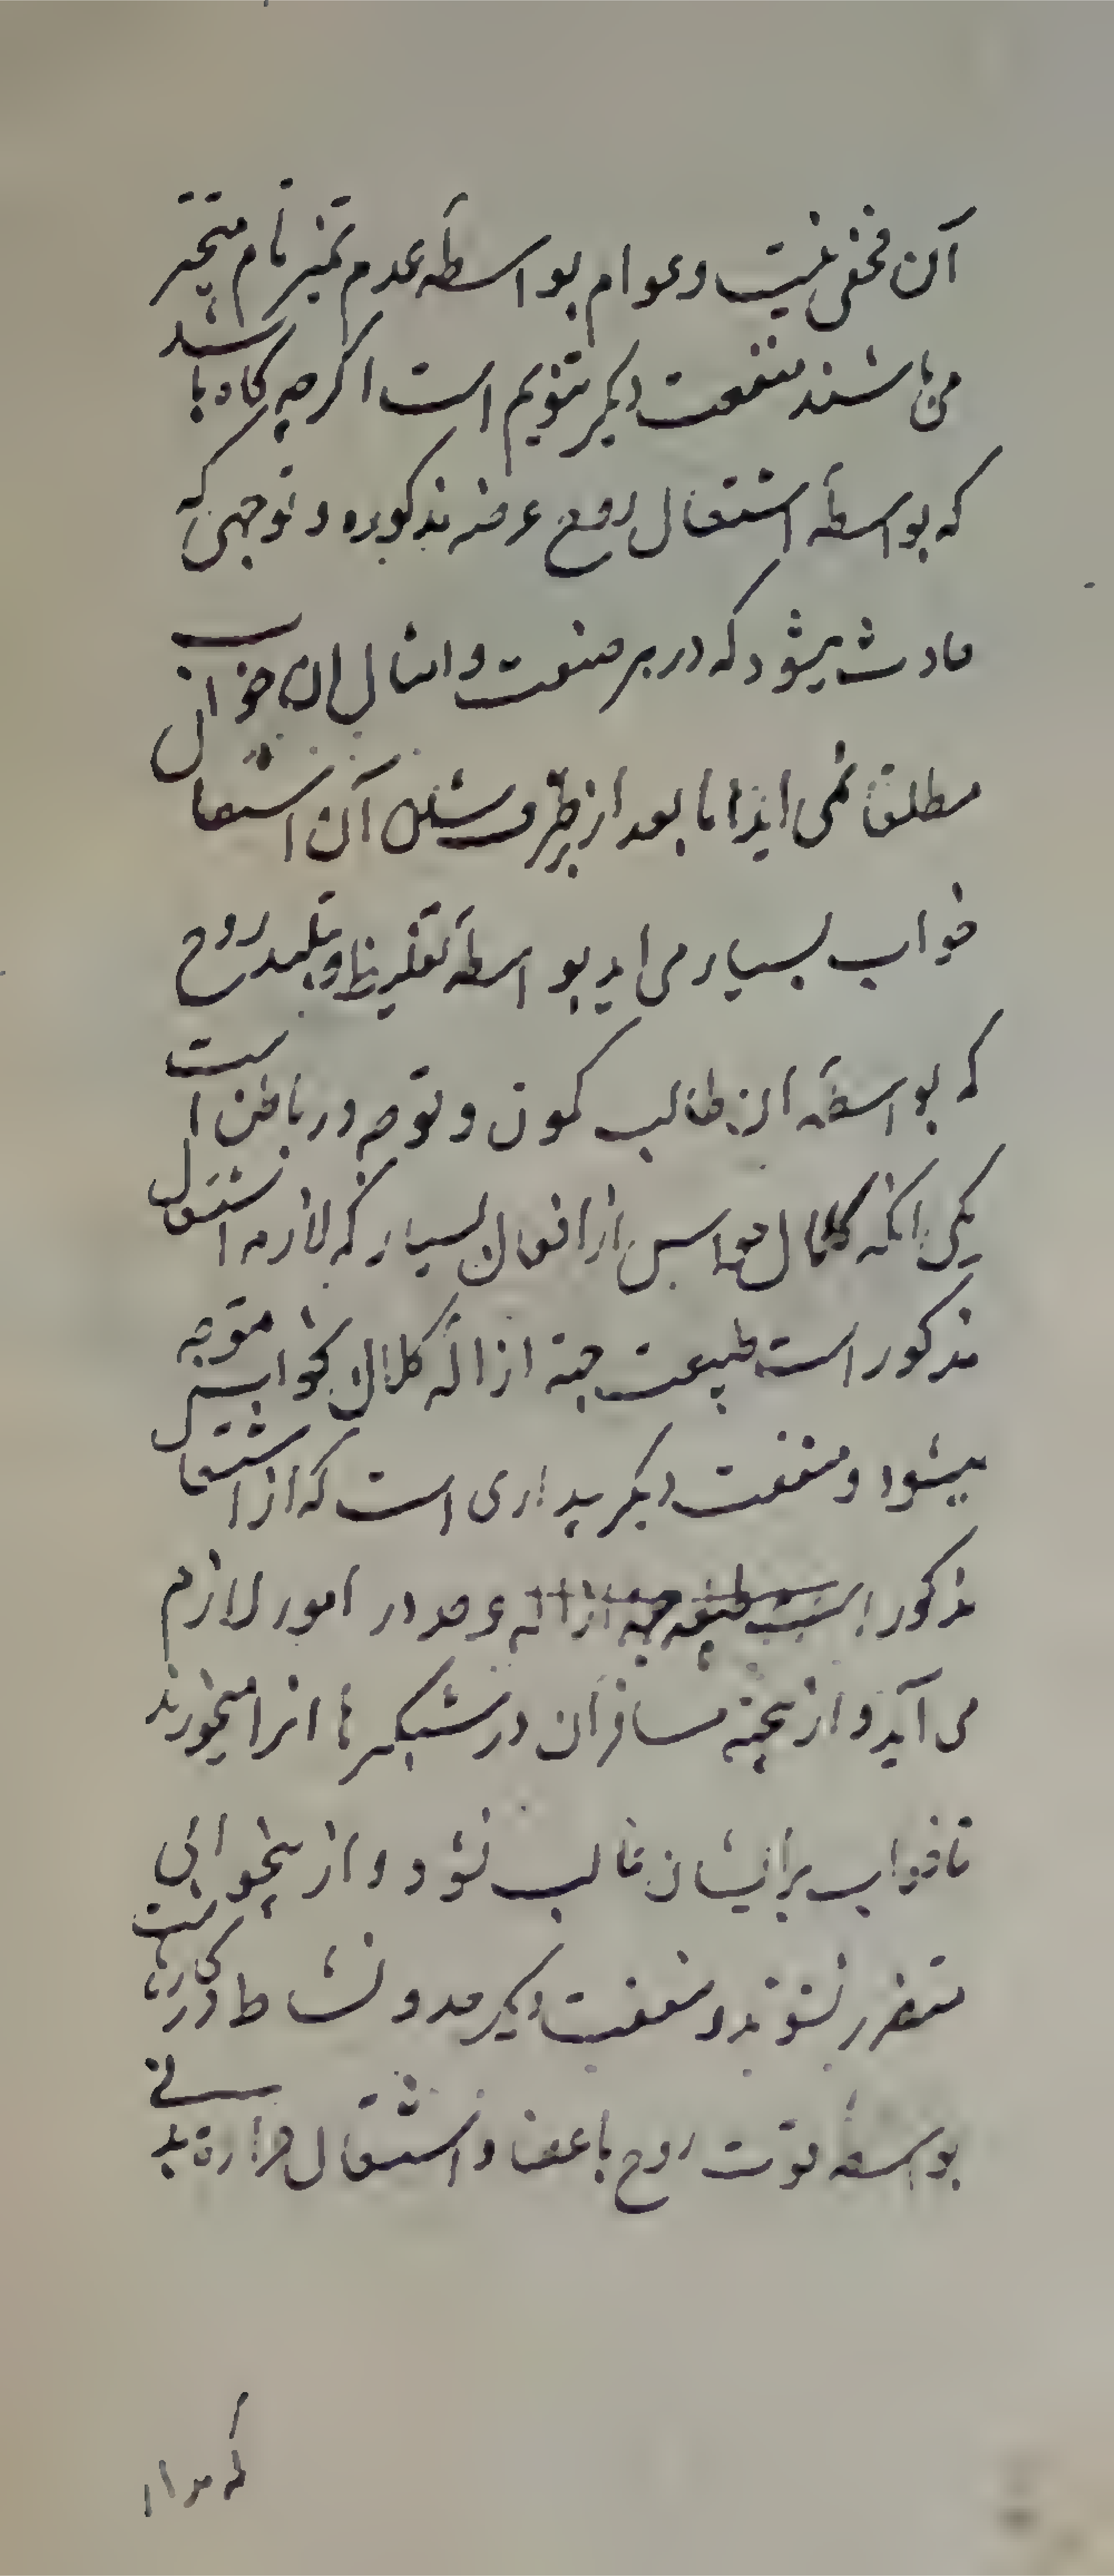 آن مخفی نیست و عوام بواسطهٔ عدم تمیز تام متحیر
می باشند منفعت دیکر تنویم است اکرچه کاه باشد
که بواسطهٔ اشتعال روح عرضه مذکوره و توجهی که
حادث میشود که در بر صنعت و امثال آن خواب
مطلقا نمی اید اما بعد از برطرف شدن آن اشتعال
خواب بسیار می اید بواسطهٔ تغلیظ و تبلید روح
که بواسطهٔ آن طالب کمون و توجه در باطن است
یکی انکه کلال حواس از افعال بسیار که لازمه اشتعال
مذکور است طبیعت جهة ازالهٔ کلال بخواب متوجه
میشود و منفعت دیکر بیداری است که از اشتعال
مذکور و در امور لازم
می آید و ازینجهة مسافران در شبکیرها انرا میخورند
تا خواب بر ایشان غالب نشود و از بیخوابی
متضرر نشوند و منفعت دیکر مدد و نشاط در کارهاست
بواسطهٔ قوت روح باعضا و اشتعال حرارة بدنی
که مواد